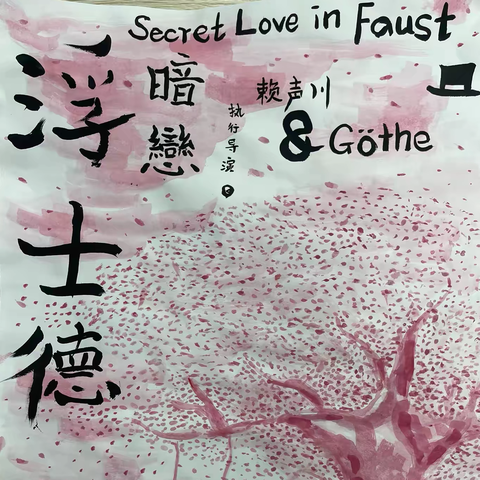 Secret Love in Faust
浮士德
暗戀
执行导演
赖声川
& Göthe